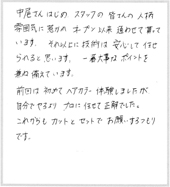 中尾さんはじめ、スタッフの皆さんの人柄
雰囲気に惹かれ オープン以来 通わせて貰って
います。それ以上に技術は安心して任せ
られると思います。一番大事なポイントを
兼ね備えています。
前回は初めてヘアカラー体験しましたが
自分でやるより プロに任せて正解でした。
これからも カットとセットで お願いするつもり
です。